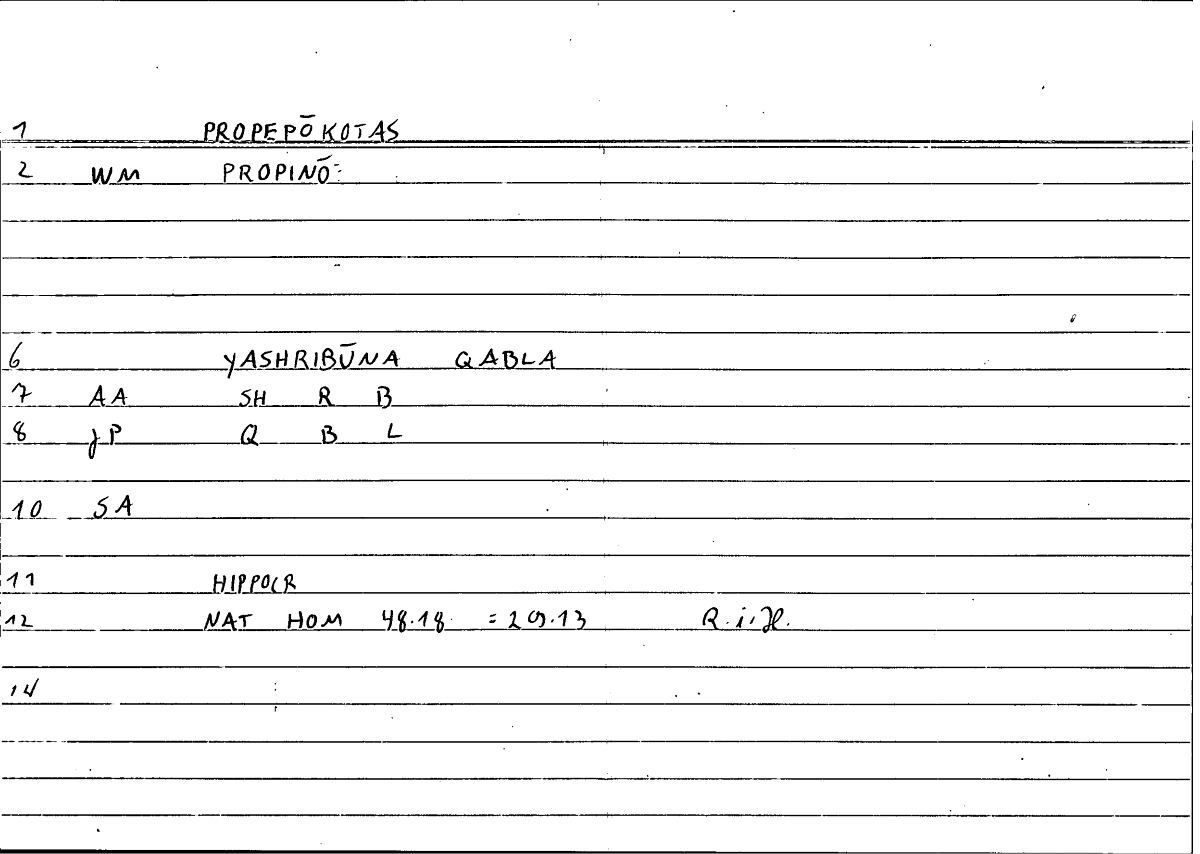 1 PROPEPŌKOTAS
2 WM PROPINŌ:
6 YASHRIBŪNA QABLA
7 AA SH R B
8 JP Q B L
10 SA
11 HIPPOCR
12 NAT HOM 48.18 = 29.13
14